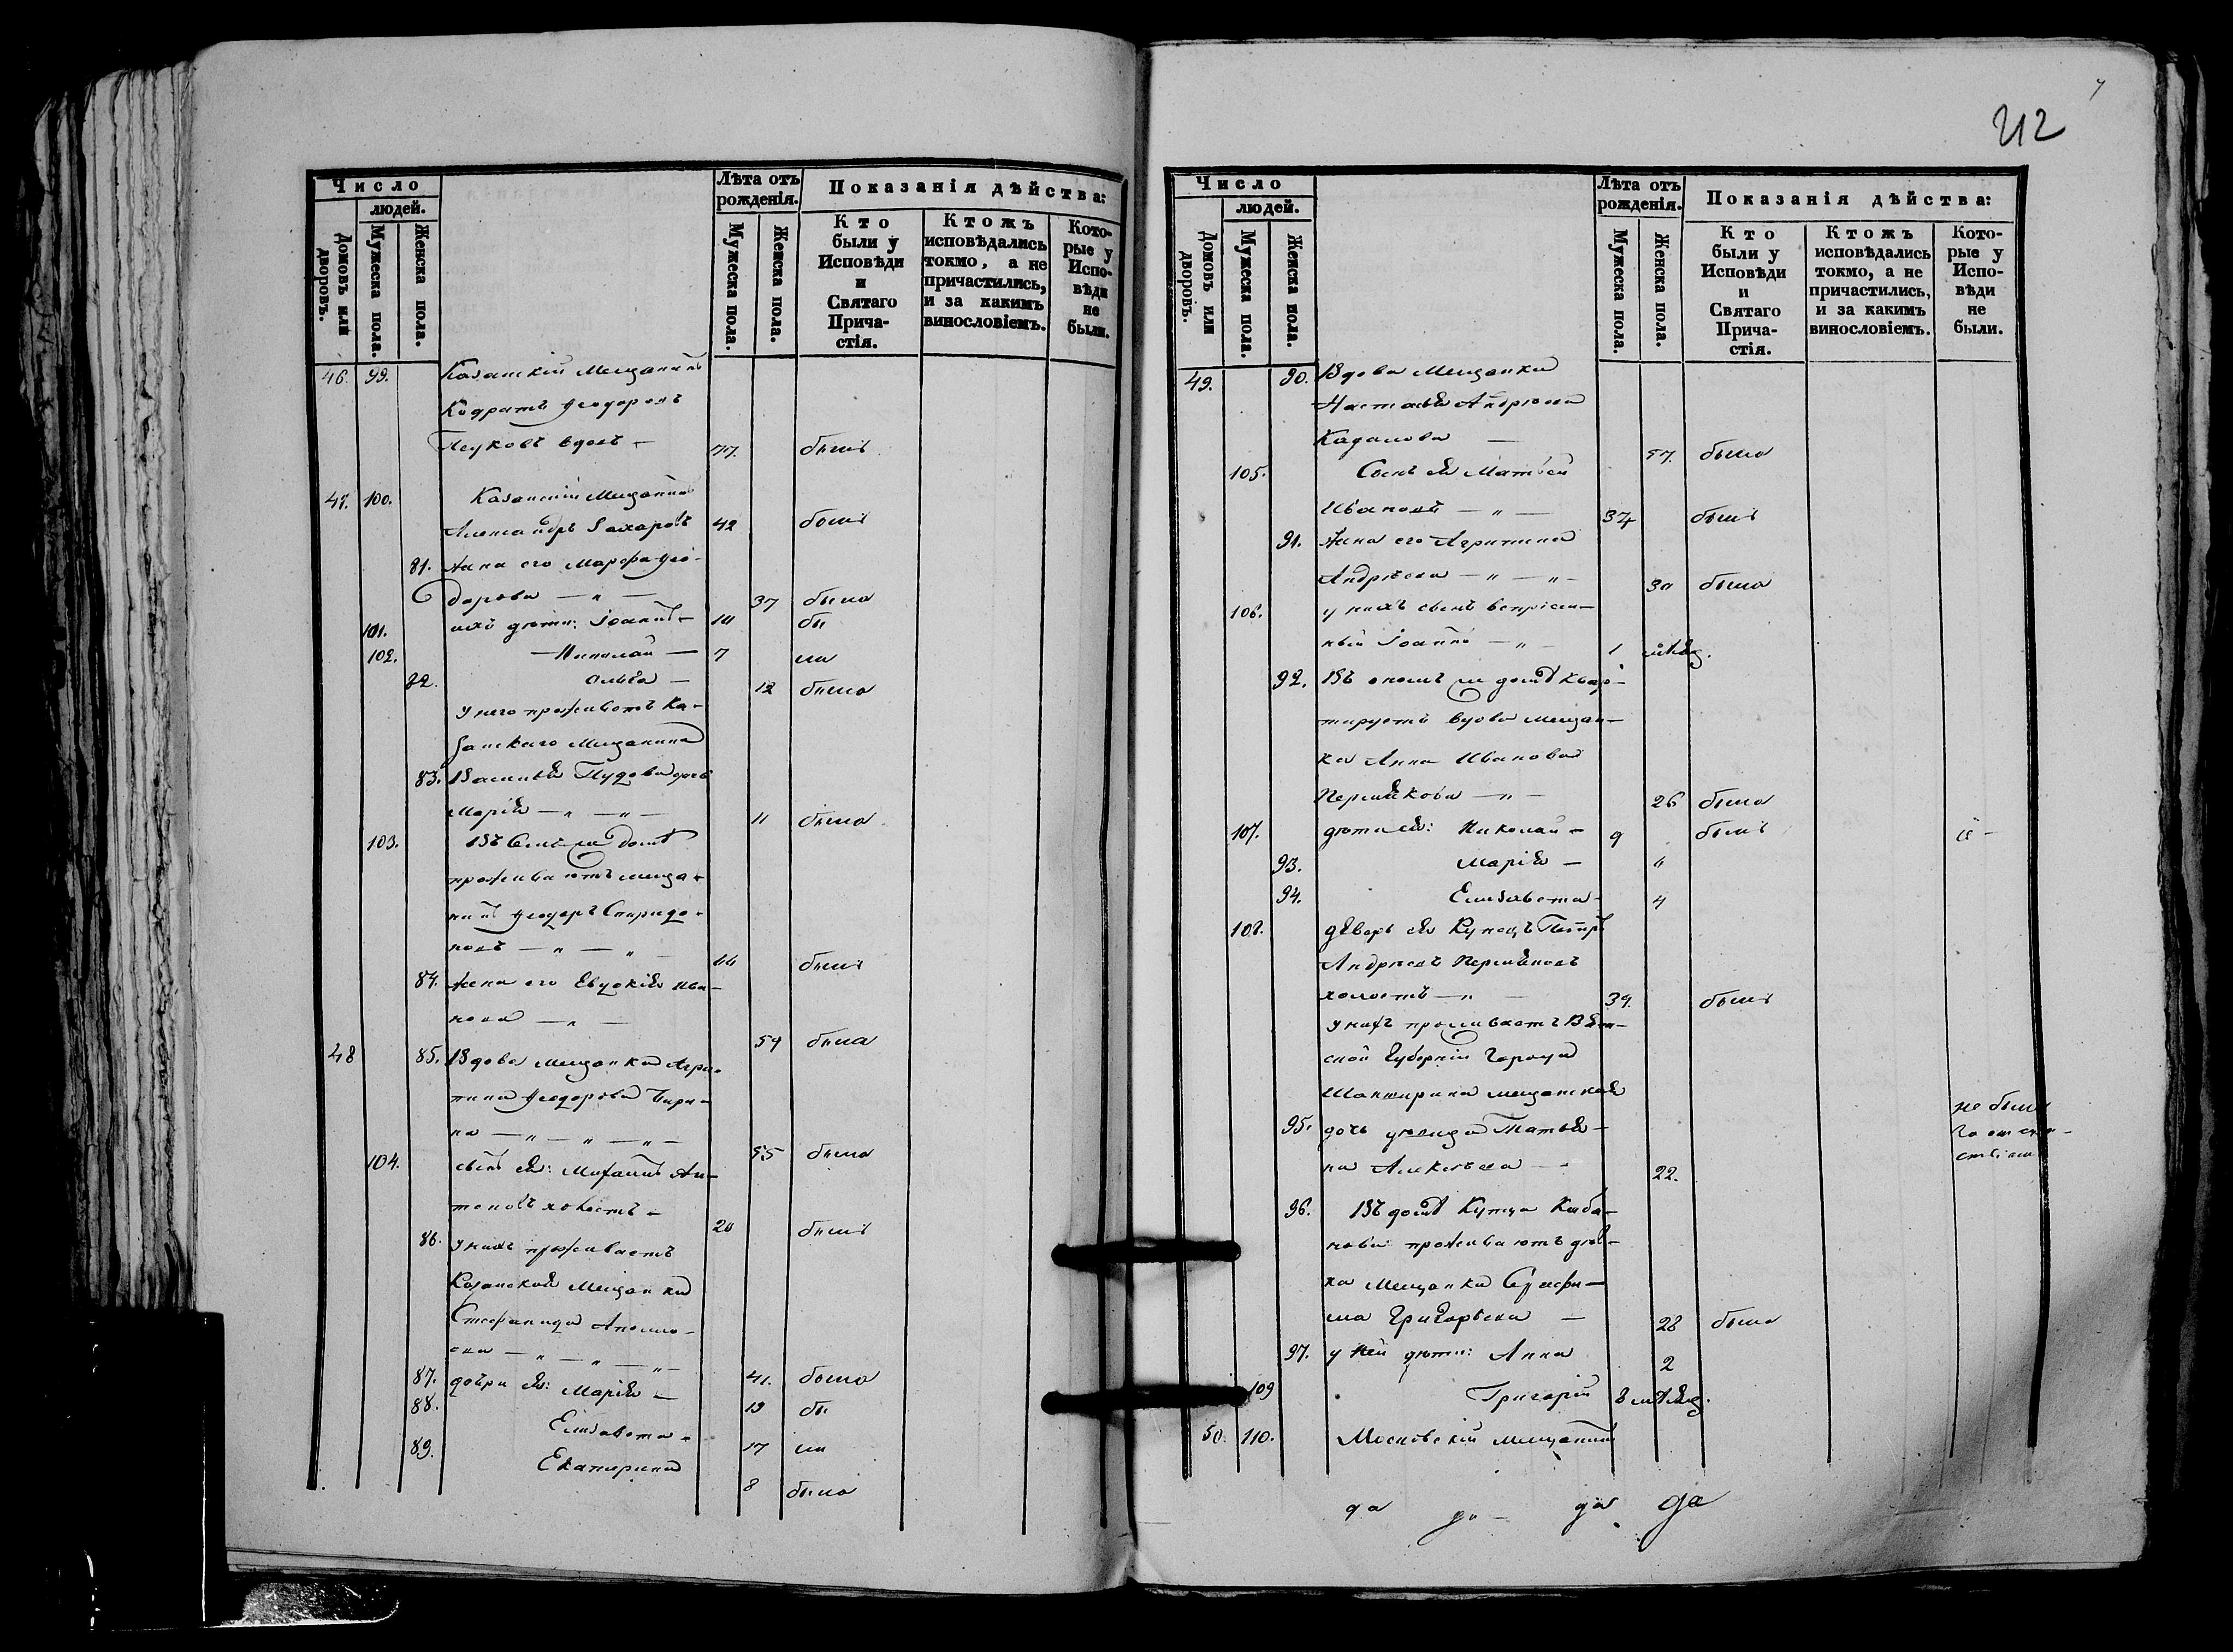 212
Число
людей.
Домовъ или дворовъ.
Мужеска пола.
Женска пола.
Лѣта отъ рожденія.
Мужеска пола.
Женска пола.
Показанія дѣйства:
Кто были у Исповѣди и Святаго Прича-стія.
Ктожъ исповѣдались токмо, а не причастились, и за какимъ винословіемъ.
Кото-рые у Испо-вѣди не были.
46. 99. Казанскій Мещанинъ
Кодратъ Ѳеодоровъ
вдовъ — 77. былъ
47. 100. Казанскій Мещанинъ
Александръ Захаровъ 42 былъ
81. Жена его Марфа Ѳео-
дорова — „ — 37 была
101. ихъ дѣти: Іоаннъ — 10 бы
102. — Николай — 7 ли
82. Ольга — 12 была
У него проживаетъ Ка-
занскаго Мещанина
83. Василья дочь
Марія — „ — „ — 11 была
103. Въ семъ же домѣ
проживаютъ меща-
нинъ Ѳеодоръ Спиридо-
новъ — „ — „ — былъ
84. Жена его Евдокія Ива-
нова — „ — 54 была
48 85. Вдова Мещанка Агри-
пина Ѳеодорова
на — „ — „ — „ — 55 была
104. сынъ ея: Михаилъ Ан-
тоновъ холостъ — 20 былъ
86. У нихъ проживаетъ
Казанская Мещанка
Стефанида
ева — „ — „ — „ — 41. была
87. дочери ея: Марія — 19 бы
88. Елизавета — 17 ли
89. Екатерина 8 была
Число
людей.
Домовъ или дворовъ.
Мужеска пола.
Женска пола.
Лѣта отъ рожденія.
Мужеска пола.
Женска пола.
Показанія дѣйства:
Кто были у Исповѣди и Святаго Прича-стія.
Ктожъ исповѣдались токмо, а не причастились, и за какимъ винословіемъ.
Кото-рые у Испо-вѣди не были.
49. 90. Вдова Мещанка
Настасья Андреева
— 57. была
105. Сынъ ея Матвѣй
Ивановъ — „ — 34 былъ
91. Жена его Агрипина
Андреева — „ — „ — 30 была
106. у нихъ сынъ
Іоаннъ — „ — 1 мѣсяц.
92. Въ ономъ же домѣ квар-
тируетъ вдова мещан-
ка Анна Иванова
Пермякова — „ — 26 была
107. дѣти ея: Николай — 9 былъ
93. Марія — „
94. Елизавета — 4
108. деверь ея Купецъ Петръ
Андреевъ Пермяковъ
холостъ — „ — 39. былъ
У нихъ проживаетъ Вят-
ской Губерніи Города
мещанская
95. дочь дѣвица Татья-
на Алексѣева — 22. не была
за отсут-
ствіемъ
96. Въ домѣ Купца
проживаютъ дѣв-
ка Мещанка
Григорьева — 28 была
97. у ней дѣти: Анна 2
109 Григорій 8 мѣсяц.
50. 110. Московскій мещанинъ
да да — да да